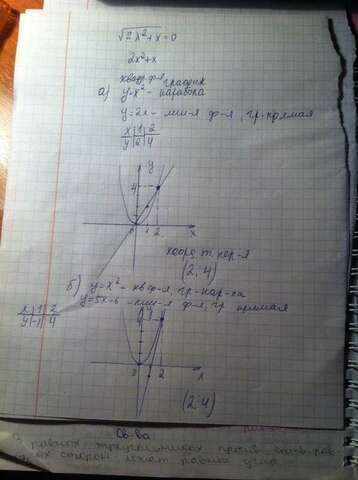 √2x²+x=0
2x²+x
квадр. ф-я график
а) y=x² - парабола
y=2x - лин-я ф-я, гр-прямая
x | 1 | 2
y | 2 | 4
y
4
0 1 2 x
коорд. т. пер-я
(2; 4)
б) y=x² - кв. ф-я, гр-пар-ла
y=5x-6 - лин-я ф-я, гр. прямая
x | 1 | 2
y | -1 | 4
0 2 x
(2; 4)
Св-ва
В равных треугольниках против
равных сторон лежат равные углы